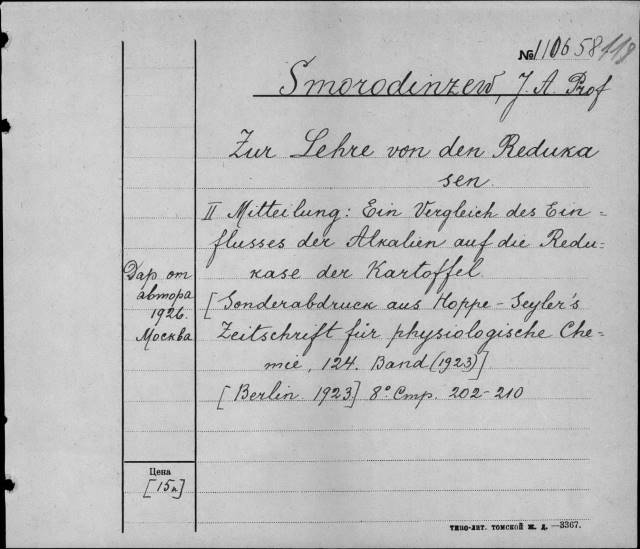 № 110658
Smorodinzew, J. A. Prof
Zur Lehre von den Reduka
sen.
II Mitteilung: Ein Vergleich des Ein=
flusses der Alkalien auf die Redu-
kase der Kartoffel.
[Sonderabdruck aus Hoppe-Seyler's
Zeitschrift für physiologische Che-
mie, 124. Band (1923)]
[Berlin. 1923] 8° Стр. 202-210
Дар от
автора
1926.
Москва
Цена
[15к]
ТИПО-ЛИТ. ТОМСКОЙ Ж. Д. —3367.